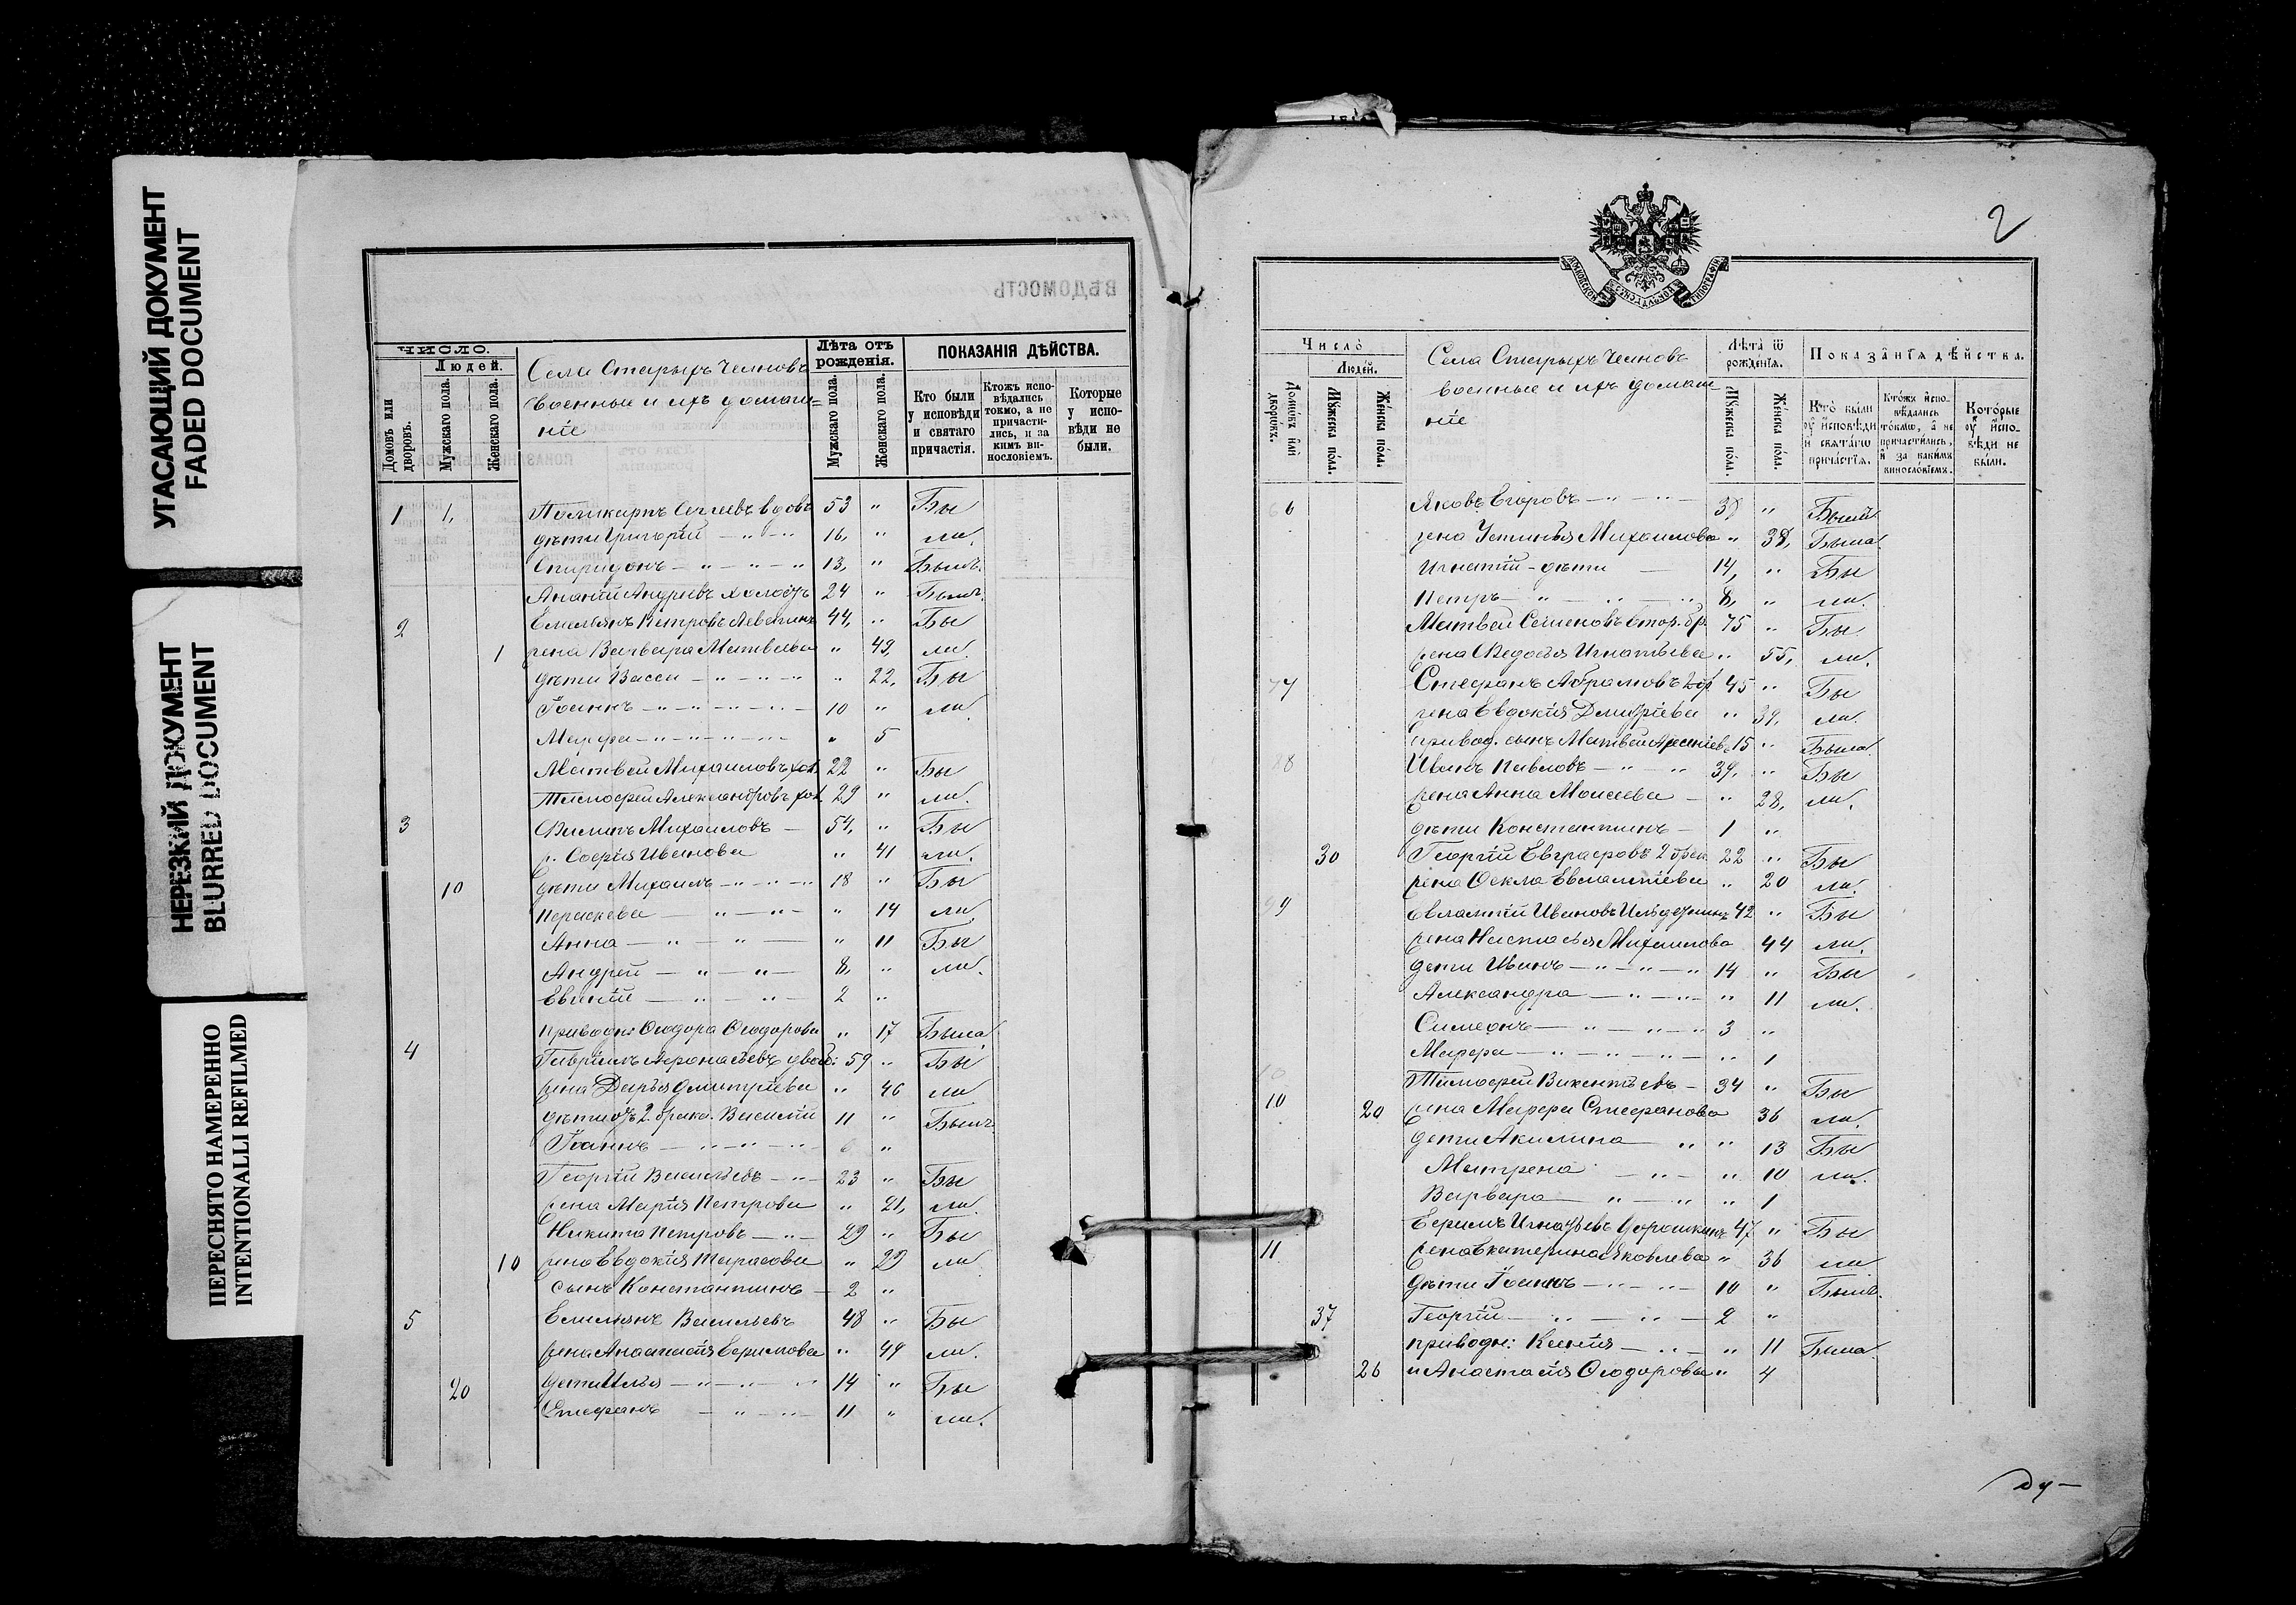 УГАСАЮЩИЙ ДОКУМЕНТ
FADED DOCUMENT
НЕРЕЗКИЙ ДОКУМЕНТ
BLURRED DOCUMENT
ПЕРЕСНЯТО НАМЕРЕННО
INTENTIONALLI REFILMED
ВѢДОМОСТЬ
ЧИСЛО.
Домовъ или дворовъ.
Людей.
Мужскаго пола.
Женскаго пола.
Села Старыхъ Челновъ
военные и ихъ домаш=
ніе
Лѣта отъ рожденія.
Мужскаго пола.
Женскаго пола.
ПОКАЗАНІЯ ДѢЙСТВА.
Кто были у исповѣди и святаго причастія.
Ктожъ исповѣдались токмо, а не причастились, и за кимъ винословіемъ.
Которые у исповѣди не были.
1 1, Поликарпъ вдовъ 53 " Бы
дѣти Григорій 16, " ли.
Спиридонъ 13, " Былъ.
Ананій Андреевъ холостъ 24 " Былъ.
2 Емельянъ Петровъ 44, " Бы
1 жена Варвара Матвеева " 49, ли.
дѣти Васса " 22, Бы
Іоаннъ 10 " ли.
Марфа " 5
Матвей Михаиловъ хол. 22 " Бы
Тимофей Александровъ хол. 29 " ли.
3 Филипъ Михаиловъ 54, " Бы
ж. Софія Иванова " 41 ли.
10 дѣти Михаилъ 18 " Бы
Параскева " 14 ли.
Анна " 11 Бы
Андрей 8, " ли.
Евгеній 2 "
приводн: Ѳеодора Ѳеодорова " 17 Была
4 Гавріилъ Афонасьевъ 59 " Бы
жена Дарья Дмитріева " 46 ли
дѣти отъ 2. брака. Василій 11 " Былъ.
Іоаннъ 6 "
Георгій Васильевъ 23 " Бы
жена Марія Петрова " 21, ли.
Никита Петровъ 29 " Бы
10 жена Евдокія Тарасова " 29 ли
сынъ Константинъ 2 "
5 Емельянъ Васильевъ 48 " Бы
жена Анастасія Ефимова " 49 ли.
20 дети Илья 14 " Бы
Стефанъ 11 " ли.
2
Число
Домовъ или дворовъ.
Людей.
Мужеска пола.
Женска пола.
Села Старыхъ Челновъ
военные и ихъ домаш
ніе
Лѣта ѿ рожденія.
Мужеска пола.
Женска пола.
Показанія дѣйства.
Кто были у исповѣди и святагѡ причастія.
Ктожъ исповѣдались токмѡ, а не причастились, и за какимъ винословіемъ.
Которые у исповѣди не были.
6 Яковъ Егоровъ 38 " Былъ
жена Устинья Михаилова " 38, Была.
Игнатій - дѣти 14, " Бы
Петръ 8, " ли.
Матвей Семеновъ втор. бр. 75 " Бы
жена Федосья Игнатьева " 55, ли.
7 Стефанъ Абрамовъ 2 бр 45 " Бы
жена Евдокія Дмитріева " 39, ли.
привод. сынъ Матвей Арсеніевъ 15 "
8 Иванъ Павловъ 39, " Бы
жена Анна Моисеева " 28, ли.
дѣти Константинъ 1 "
30 Георгій Евграфовъ 2 брак 22 " Бы
жена Ѳекла Евлампіева " 20 ли.
9 Евлампій Ивановъ 42 " Бы
жена Настасья Михаилова 44 ли.
дети Иванъ 14 " Бы
Александра " 11 ли.
Симеонъ 3 "
Марфа " 1
Тимофей Викентьевъ 34 " Бы
10 20 жена Марфа Стефанова 36 ли.
дети Акилина " 13 Бы
Матрена " 10 ли.
Варвара " 1
Ефимъ Игнатьевъ Дорошкинъ 47 " Бы
11 жена Екатерина Яковлева " 36 ли
дѣти Іоаннъ 10 " Былъ.
37 Георгій 2 "
приводн: Ксенія " 11 Была.
26 и Анастасія Ѳеодоровы " 4
Ду-